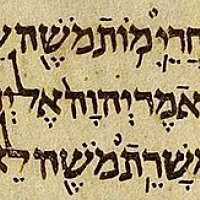 חֲרֵי מוֹת מֹשֶׁה
אמֶר יְהוָה אֶל יְ
מְשָׁרֵת מֹשֶׁה לֵא